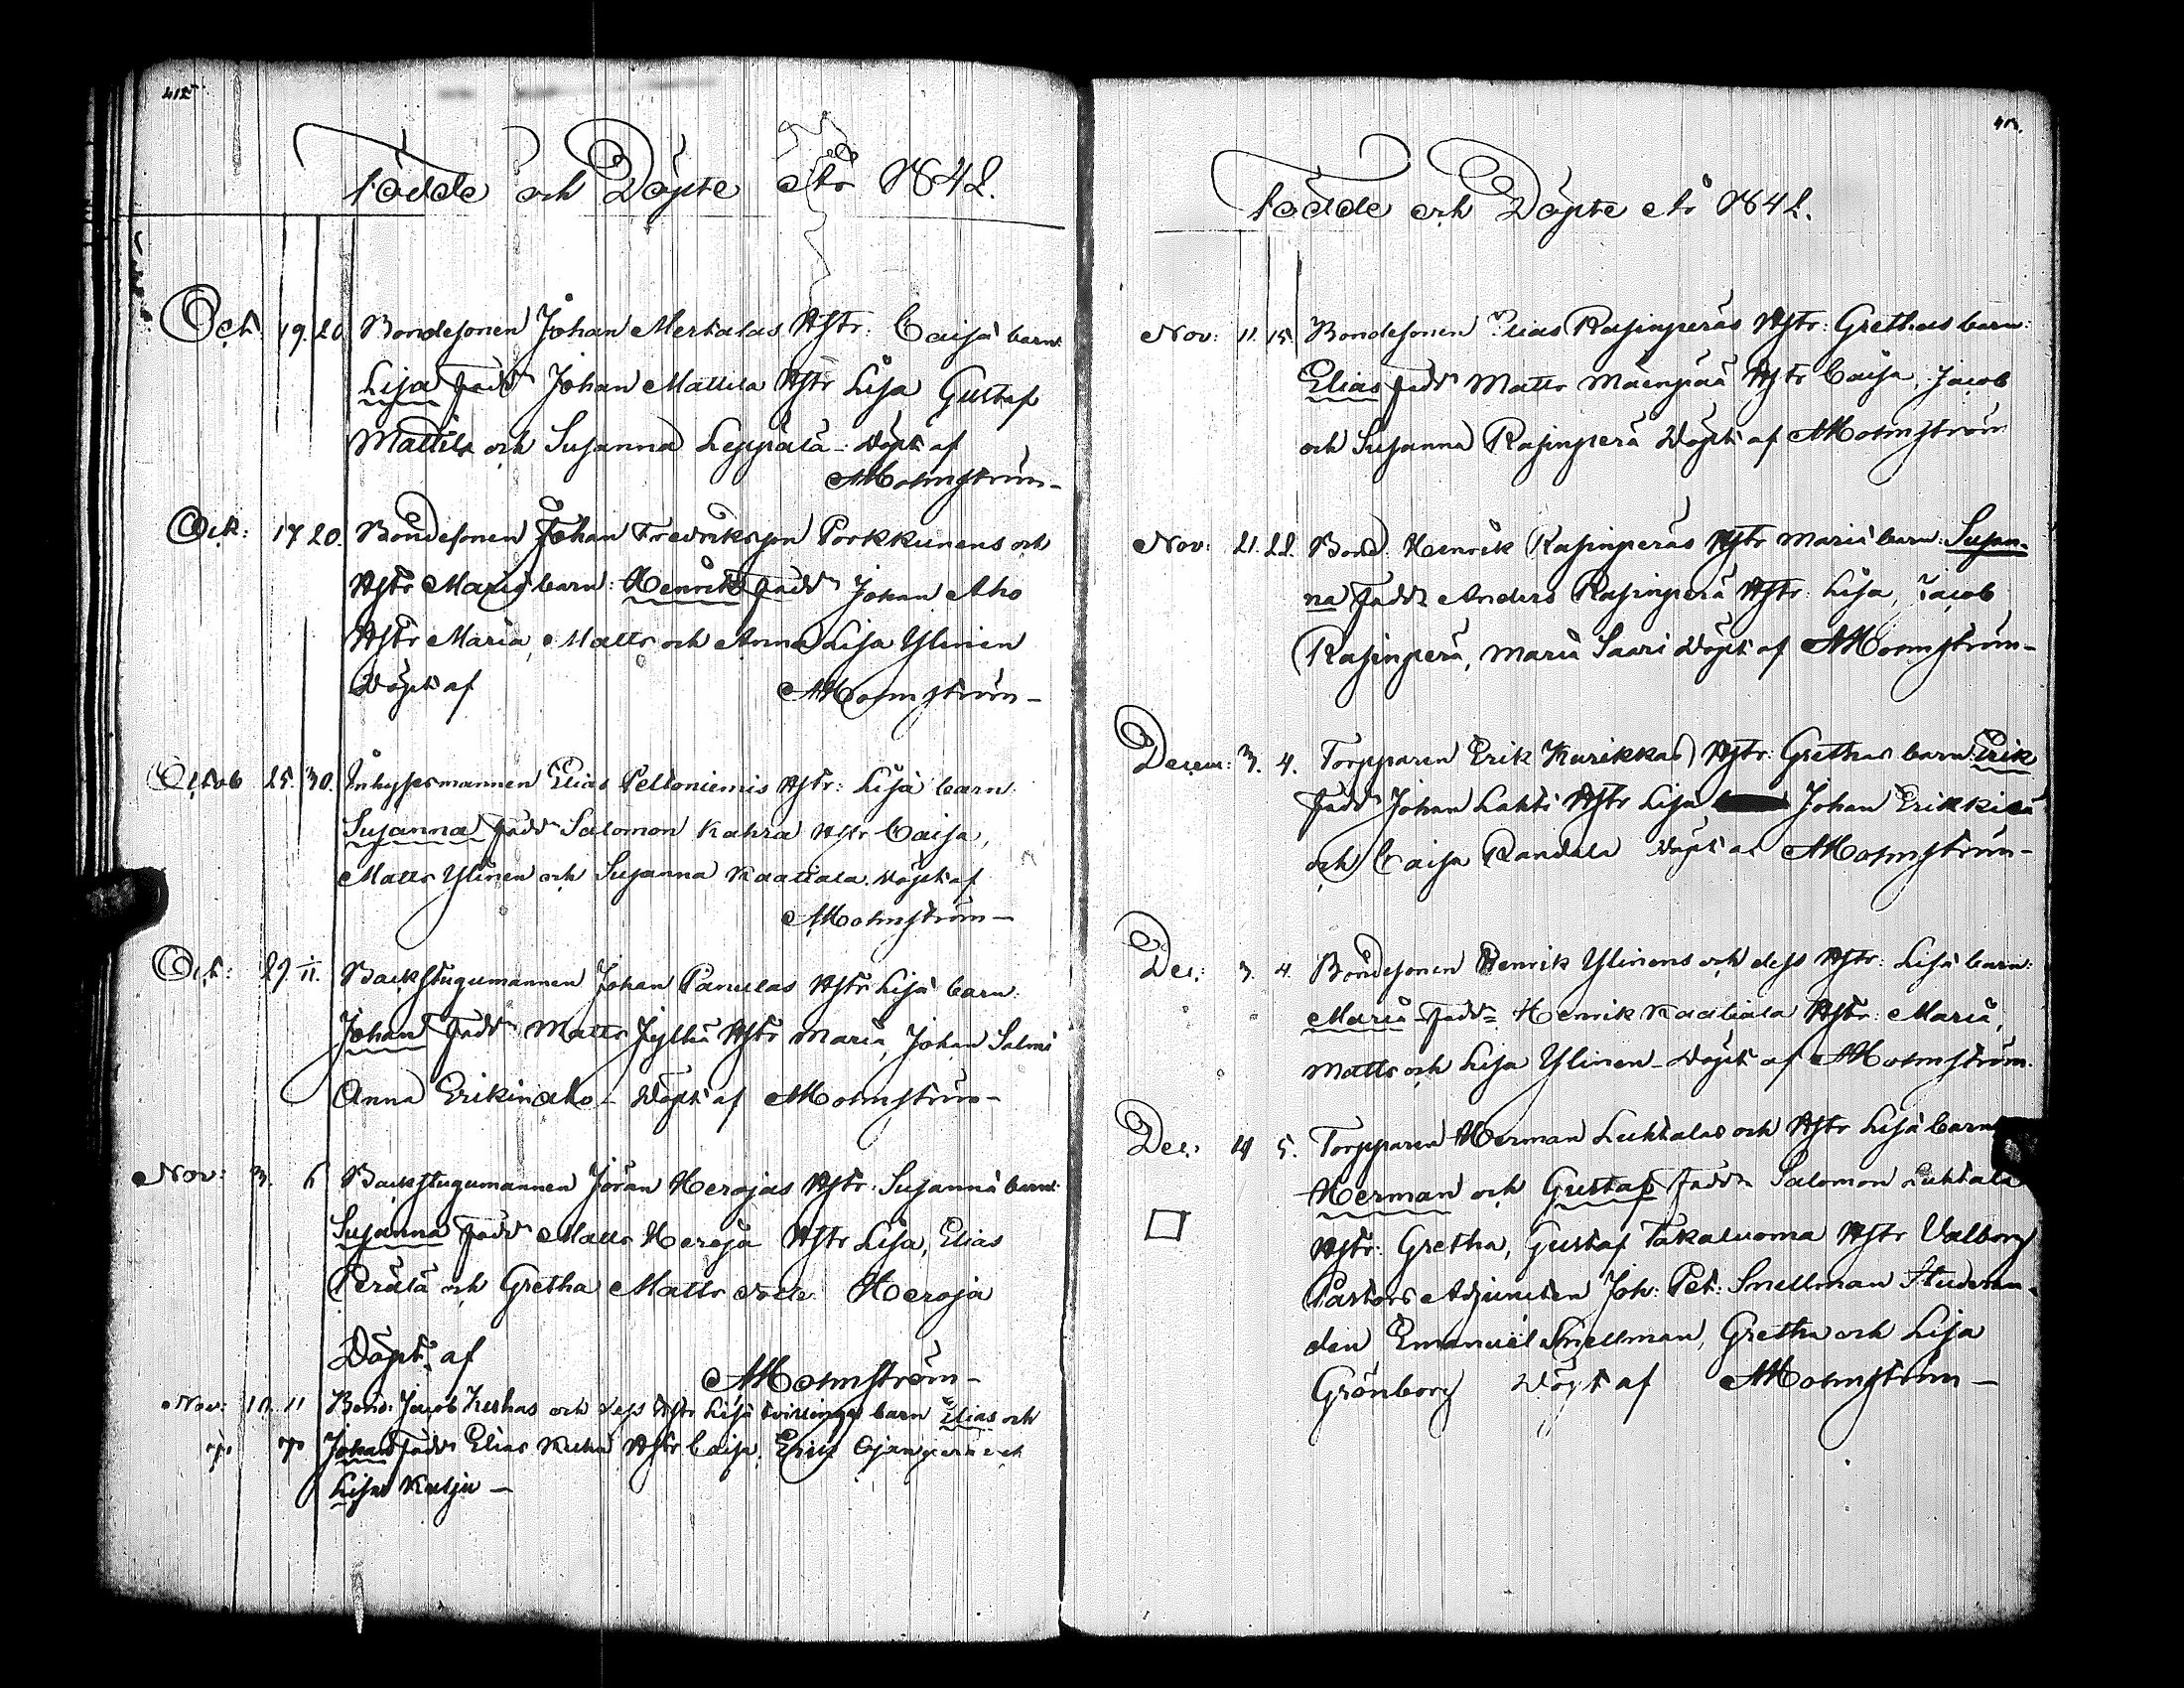 412
Födde och Döpte År 1842.
Oct: 19. 20. Bondesonen Johan Mertalas Hstr: Caisa barn:
Lisa fadd: Johan Mattila Hstr Lisa Gustaf
Mattila och Susanna Leppälä - Döpt af
AHolmström -
Oct: 17 20. Bondesonen Johan Fredriksson Porkkunens och
Hstr Maria barn: Henrik fadd: Johan Aho
Hstr Maria, Matts och Anna Lisa Ylinen
Döpt af AHolmström -
Octob 25. 30. Inhysesmannen Elias Peltoniemis Hstr: Lisa barn:
Susanna fadd Salomon Kahra Hstr Caisa,
Matts Ylinen och Susanna Kaatiala. Döpt af
AHolmström -
Oct: 29. 1/11. Backstugumannen Johan Panulas Hstr Lisa barn:
Johan fadd: Matts Jyllhä Hstr Maria, Johan Salmi
Anna Erikinaho - Döpt af AHolmström -
Nov: 3. 6 Backstugumannen Jöran Herojas Hstr: Susanna barn:
Susanna fadd Matts Heroja Hstr Lisa, Elias
Perälä och Gretha Matts dotter Heroja
Döpt af
AHolmström -
Nov: 10. 11 Bond: Jacob Keskas och dess Hstr Lisa tvillinge barn Elias och
Johan fadd: Elias Hstr Caisa, Erik Ojanperä och
Lisa -
Födde och Döpte År 1842.
Nov: 11. 15. Bondesonen Elias Rasinperäs Hstr: Grethas barn:
Elias fadd: Matts Mäenpää Hstr Caisa, Jacob
och Susanna Rasinperä Döpt af AHolmström
Nov: 21. 22. Bond. Henrik Rasinperäs Hstr Maria barn: Susan-
na fadd: Anders Rasinperä Hstr: Lisa, Jacob
Rasinperä, Maria Saari Döpt af AHolmström -
Decem: 3. 4. Torpparen Erik Kurikkas Hstr: Grethas barn Erik
fadd: Johan Lahti Hstr Lisa Johan Erikkilä
och Caisa Randala Döpt af AHolmström -
Dec: 3. 4. Bondesonen Henrik Ylinens och dess Hstr: Lisa barn:
Maria fadd: Henrik Kaatiala Hstr: Maria,
Matts och Lisa Ylinen - Döpt af AHolmström.
Dec: 4 5. Torpparen Herman Luhtalas och Hstr Lisa barn
Herman och Gustaf fadd: Salomon Luhtala
Hstr: Gretha, Gustaf Takaluoma Hstr Valborg
Pastors Adjuncten Joh: Pet: Snellman Studeran-
den Emanuel Snellman, Gretha och Lisa
Grönborg Döpt af AHolmström -